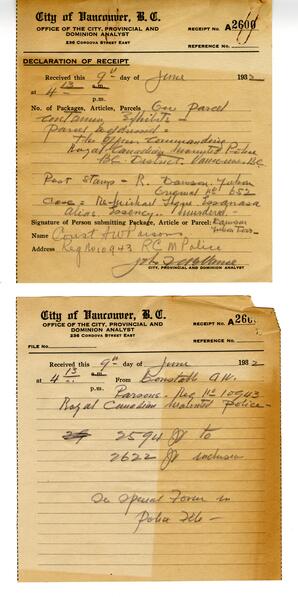 City of Vancouver, B. C.
OFFICE OF THE CITY, PROVINCIAL AND
DOMINION ANALYST
236 CORDOVA STREET EAST
RECEIPT No. A2600
REFERENCE No.
DECLARATION OF RECEIPT
Received this 9th day of June 1932
at 4 13 a.m. p.m.
No. of Packages, Articles, Parcels One Parcel
containing Exhibits
Parcel addressed
The Officer Commanding
Royal Canadian Mounted Police
B.C. District. Vancouver B.C.
Post Stamp - R. Dawson. Yukon
Original No 652
Case - Re
alias Murdered
Signature of Person submitting Package, Article or Parcel: Dawson
Yukon Terr-
Name Const A W Parsons
Address Reg No 10943 R C M Police
CITY, PROVINCIAL AND DOMINION ANALYST
City of Vancouver, B. C.
OFFICE OF THE CITY, PROVINCIAL AND
DOMINION ANALYST
236 CORDOVA STREET EAST
RECEIPT No. A260
REFERENCE No.
FILE No.
Received this 9th day of June 1932
at 4 13 p.m. From Constable A.W.
Parsons. Reg No 10943
Royal Canadian Mounted Police -
2594 to
2622 inclusive
In Special Found in
Police File -